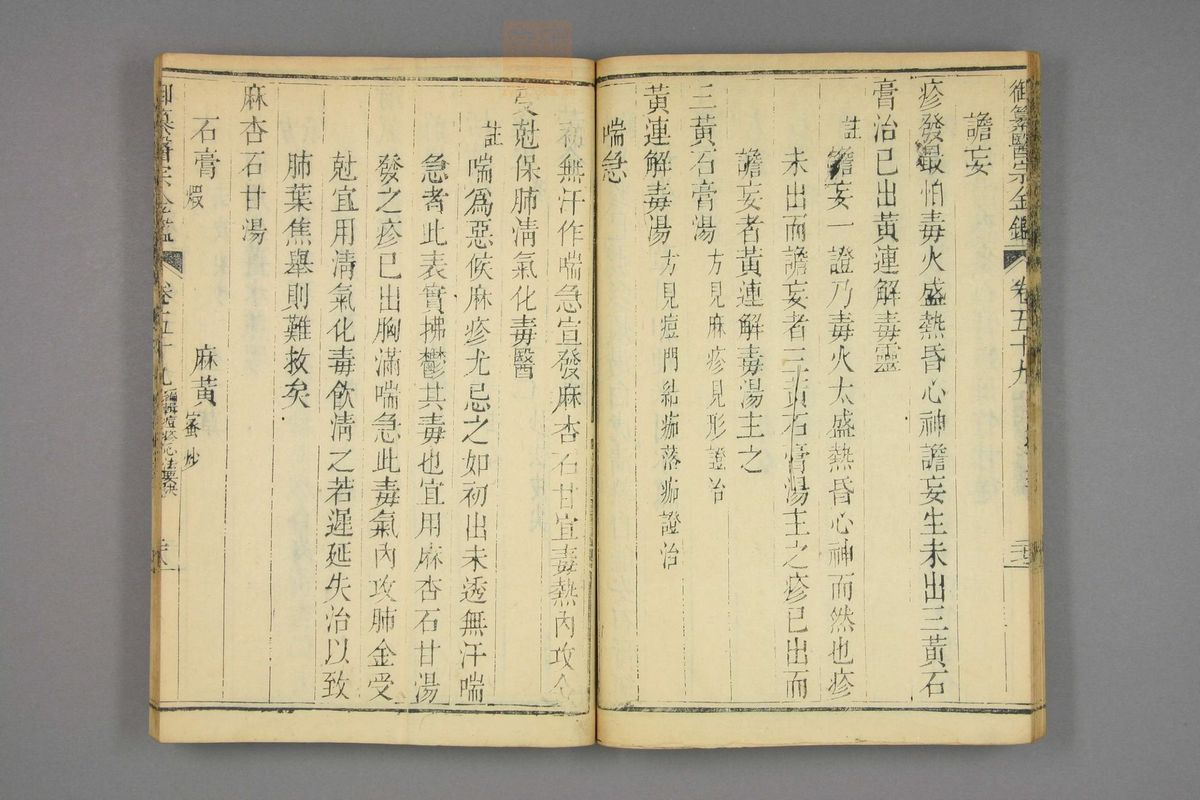 御纂醫宗金鑑 卷五十九
譫妄
疹發最怕毒火盛熱昏心神譫妄生未出三黃石
膏治已出黃連解毒靈
註 譫妄一證乃毒火太盛熱昏心神而然也疹
未出而譫妄者三黃石膏湯主之疹已出而
譫妄者黃連解毒湯主之
三黃石膏湯 方見麻疹見形證治
黃連解毒湯 方見痘門結痂落痂證治
喘急
初無汗作喘急宣發麻杏石甘宜毒熱內攻金
受尅保肺清氣化毒醫
註 喘爲惡候麻疹尤忌之如初出未透無汗喘
急者此表實拂鬱其毒也宜用麻杏石甘湯
發之疹已出胸滿喘急此毒氣內攻肺金受
尅宜用清氣化毒飲清之若遲延失治以致
肺葉焦舉則難救矣
麻杏石甘湯
石膏 煆 麻黃 蜜炒
御纂醫宗金鑑 卷五十九 編輯痘疹心法要訣